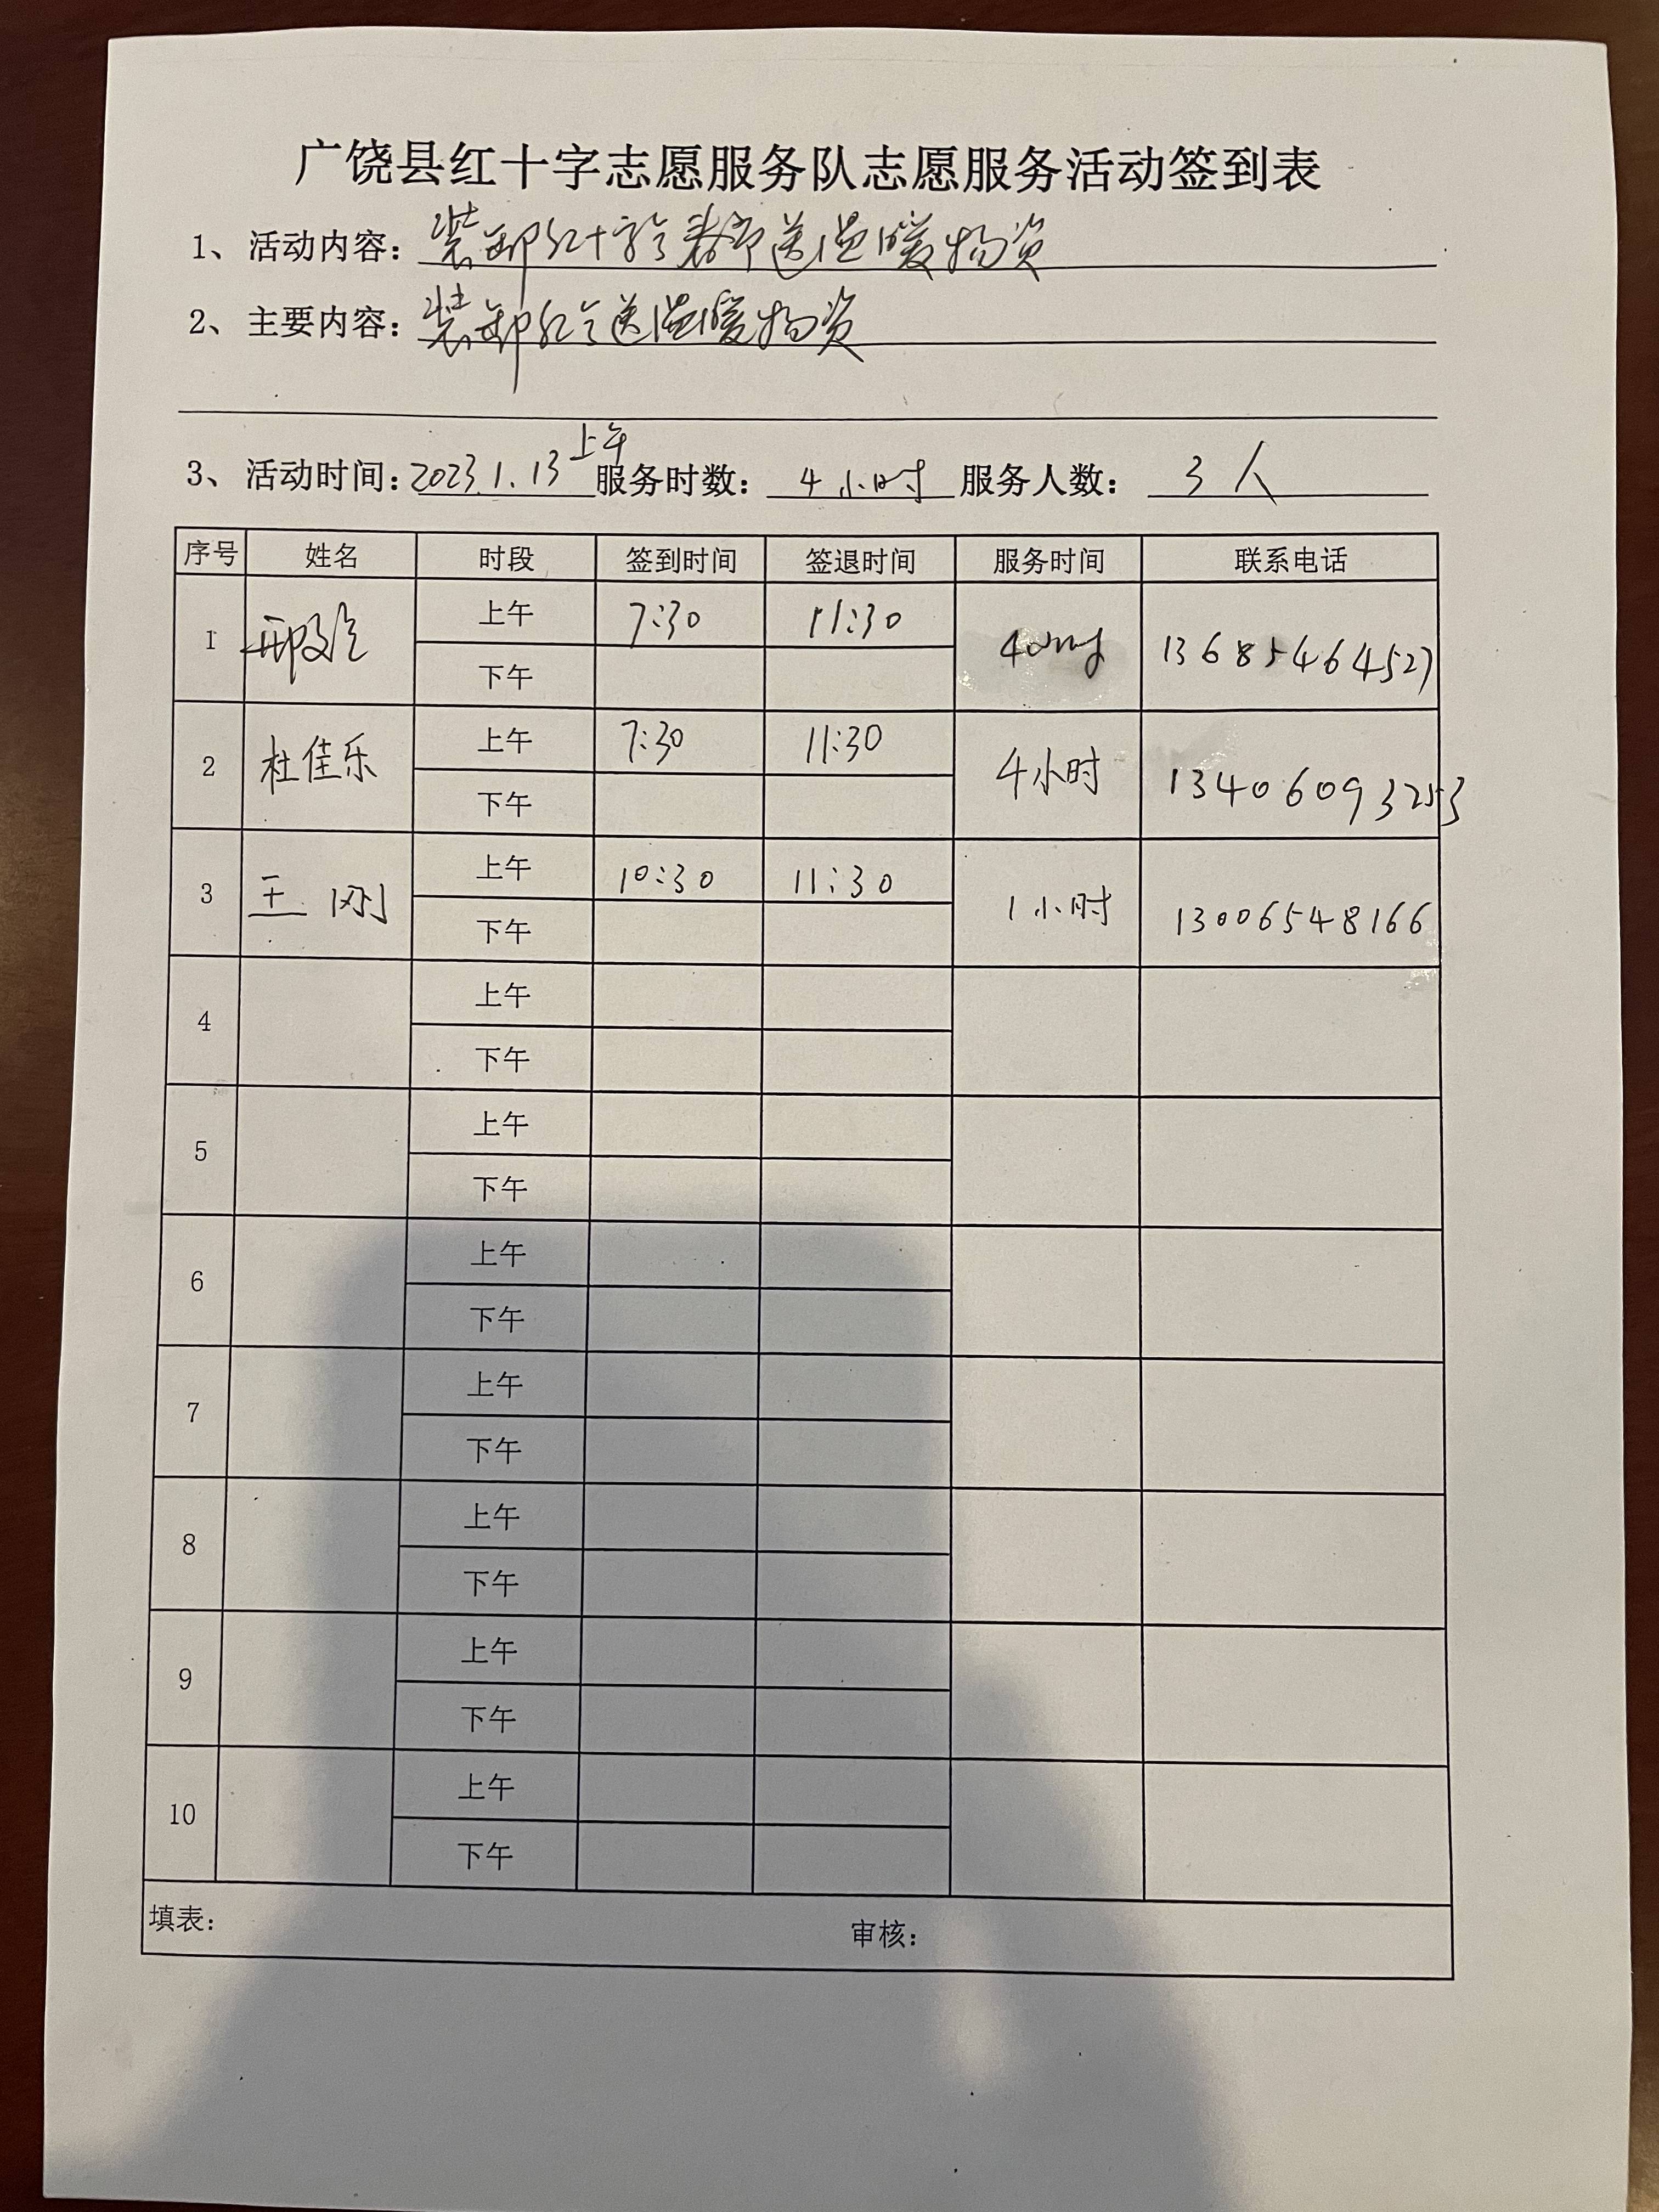 广饶县红十字志愿服务队志愿服务活动签到表
1、活动内容：装卸红十字会春节送温暖物资
2、主要内容：装卸红会送温暖物资
3、活动时间：2023.1.13上午 服务时数：4小时 服务人数：3人
序号 姓名 时段 签到时间 签退时间 服务时间 联系电话
1 邢 上午 7:30 11:30 4小时 13685464527
下午
2 杜佳乐 上午 7:30 11:30 4小时 13406093253
下午
3 王刚 上午 10:30 11:30 1小时 13006548166
下午
4 上午
下午
5 上午
下午
6 上午
下午
7 上午
下午
8 上午
下午
9 上午
下午
10 上午
下午
填表： 审核：